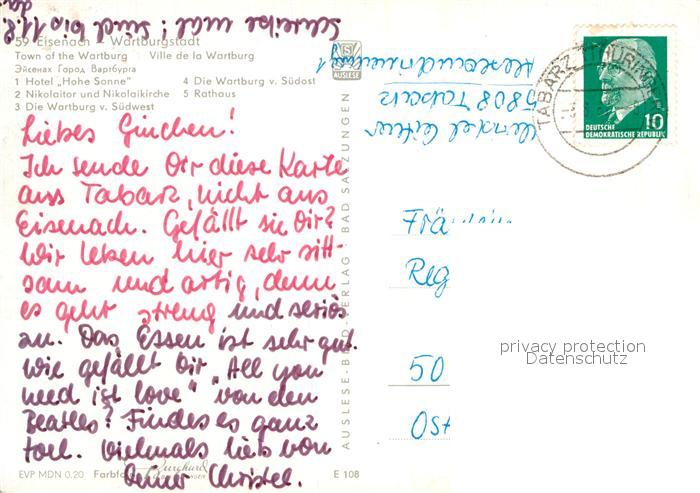 Schreibe mal! Sind bis 11.8. da.
59 Eisenach - Wartburgstadt
Town of the Wartburg Ville de la Wartburg
Эйсенах Город Вартбурга
1 Hotel „Hohe Sonne"
2 Nikolaitor und Nikolaikirche
3 Die Wartburg v. Südwest
4 Die Wartburg v. Südost
5 Rathaus
Liebes Ginchen!
Ich sende Dir diese Karte
aus Tabarz, nicht aus
Eisenach. Gefällt sie Dir?
Wir leben hier sehr sitt-
sam und artig, denn
es geht streng und seriös
zu. Das Essen ist sehr gut.
Wie gefällt Dir „All you
need ist love" von den
Beatles? Finde es ganz
toll. Vielmals lieb von
Deiner Christel.
EVP MDN 0,20 Farbfoto
Burghard
E 108
AUSLESE-BILD-VERLAG · BAD SALZUNGEN
AUSLESE
5808 Tabarz
TABARZ (THÜRINGER
DEUTSCHE
DEMOKRATISCHE REPUBLIK
10
Frä
Reg
50
Ost
privacy protection
Datenschutz